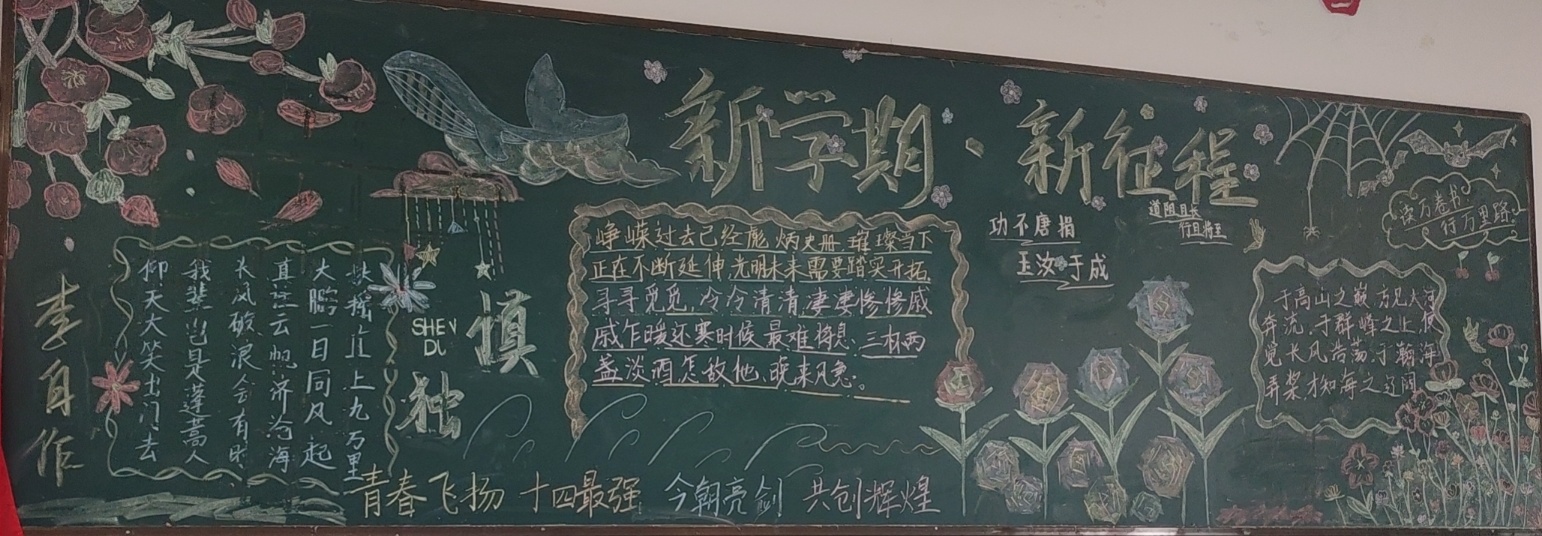 新学期·新征程
李自作
仰天大笑出门去
我辈岂是蓬蒿人
长风破浪会有时
直挂云帆济沧海
大鹏一日同风起
扶摇直上九万里
慎独
SHEN
DU
峥嵘过去已经彪炳史册,璀璨当下
正在不断延伸,光明未来需要踏实开拓
寻寻觅觅,冷冷清清,凄凄惨惨戚
戚乍暖还寒时候,最难将息、三杯两
盏淡酒怎敌他、晚来风急。
功不唐捐
玉汝于成
道阻且长
行且将至
读万卷书
行万里路
于高山之巅,方见大河
奔流,于群峰之上,便
觉长风浩荡,于瀚海
弄桨,才知海之辽阔
青春飞扬 十四最强 今朝亮剑 共创辉煌